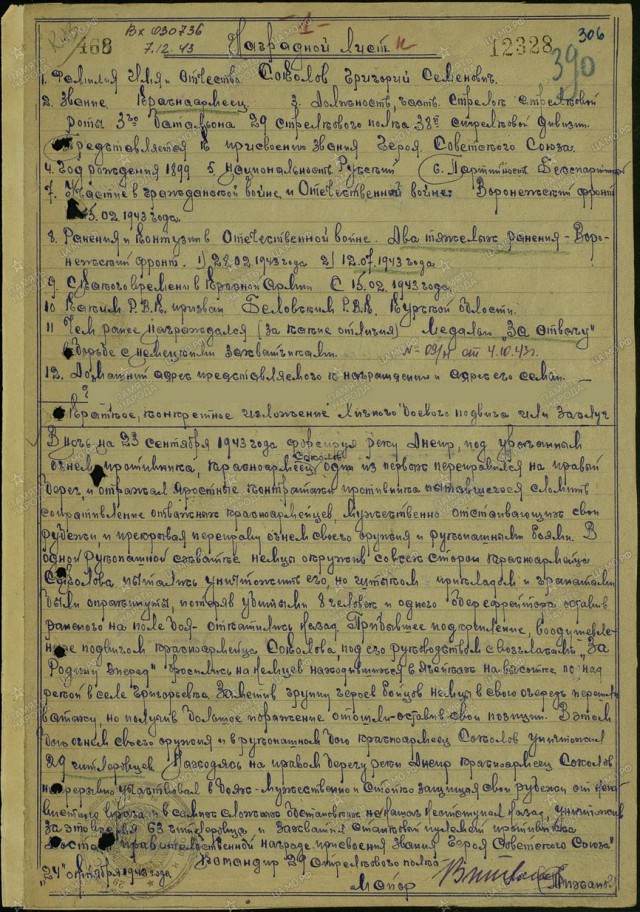 Вх 030736
7.12.43
-1-
306
468
Наградной лист
12328
390
1. Фамилия Имя и Отчество Соколов Григорий Семенович.
2. Звание Красноармеец 3. Должность, часть стрелок стрелковой
роты 3го батальона 29 стрелкового полка 38й стрелковой дивизии.
Представляется к присвоению звания Героя Советского Союза.
4. Год рождения 1899 5. Национальность Русский 6. Партийность Беспартийный
7. Участие в гражданской войне и Отечественной войне: Воронежский фронт
15.02 1943 года.
8. Ранения и контузии в Отечественной войне. Два тяжелых ранения – Воро-
нежский фронт. 1) 28.02 1943 года 2) 12.07.1943 года
9. С какого времени в Красной Армии С 15.02 1943 года,
10 Каким Р.В.К. призван Беловским Р.В.К. Курской области.
11 Чем ранее награждался (за какие отличия) Медаль „За отвагу"
в борьбе с немецкими захватчиками. № 09/н от 4.10.43г.
12. Домашний адрес представляемого к награждению и адрес его семьи. —
Краткое, конкретное изложение личного боевого подвига или заслуг
В ночь на 23 сентября 1943 года форсируя реку Днепр, под ураганным
огнем противника, красноармеец Соколов один из первых переправился на правый
берег и отражал яростные контратаки противника пытавшегося сломить
сопротивление отважных красноармейцев, мужественно отстаивающих свои
рубежи и прикрывая переправу огнем своего оружия и рукопашными боями. В
одной рукопашной схватке немцы окружив со всех сторон красноармейца
Соколова, пытались уничтожить его, но штыком прикладом и гранатами
были опрокинуты, потеряв убитыми 8 человек и одного обер ефрейтора оставив
раненого на поле боя – откатились назад. Прибывшее подкрепление, воодушевлен-
ные подвигом красноармейца Соколова под его руководством с возгласами „За
Родину вперед" бросились на немцев находившихся в на высотке над
рекой в селе Григорьевка. Заметив группу героев бойцов немцы в свою очередь перешли
в атаку, но получив большое поражение отошли – оставив свои позиции. В этом
бою огнем своего оружия и в рукопашном бою красноармеец Соколов уничтожил
29 гитлеровцев. Находясь на правом берегу реки Днепр красноармеец Соколов
непрерывно участвовал в боях – мужественно и стойко защищая свои рубежи от
врага и в самых сложных обстановках не отступил назад, уничтожив
за это время 63 гитлеровца и захватил станковый пулемет противника
Достоин правительственной награде присвоения звания „Героя Советского Союза"
Командир 29 стрелкового полка
„24" октября 1943 года
Майор